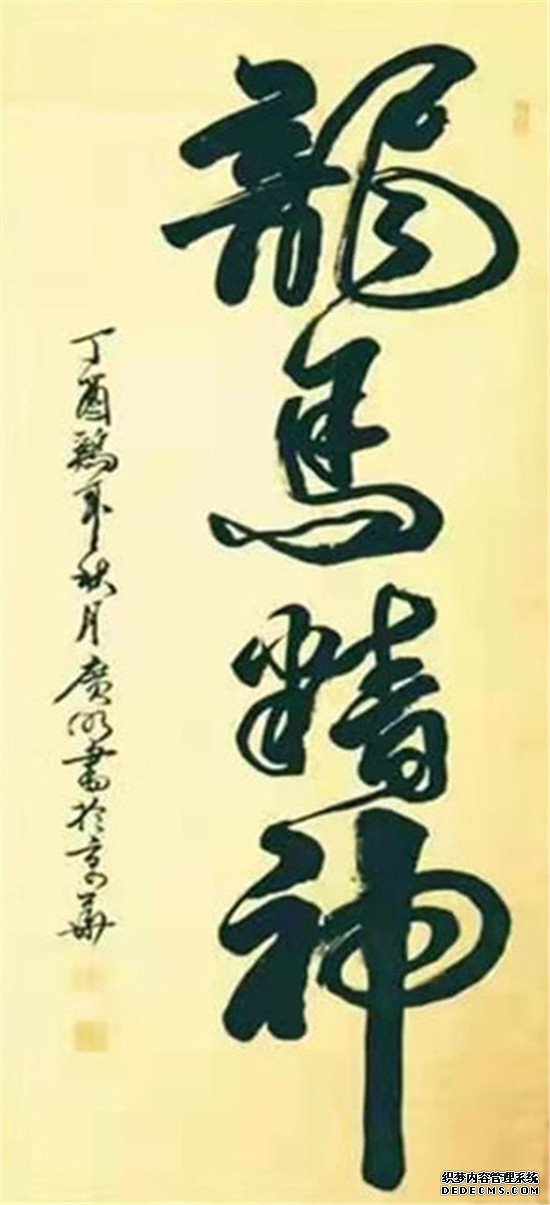 龍馬精神
丁酉鷄年秋月廣明書於京華
织梦内容管理系统
DEDECMS.COM